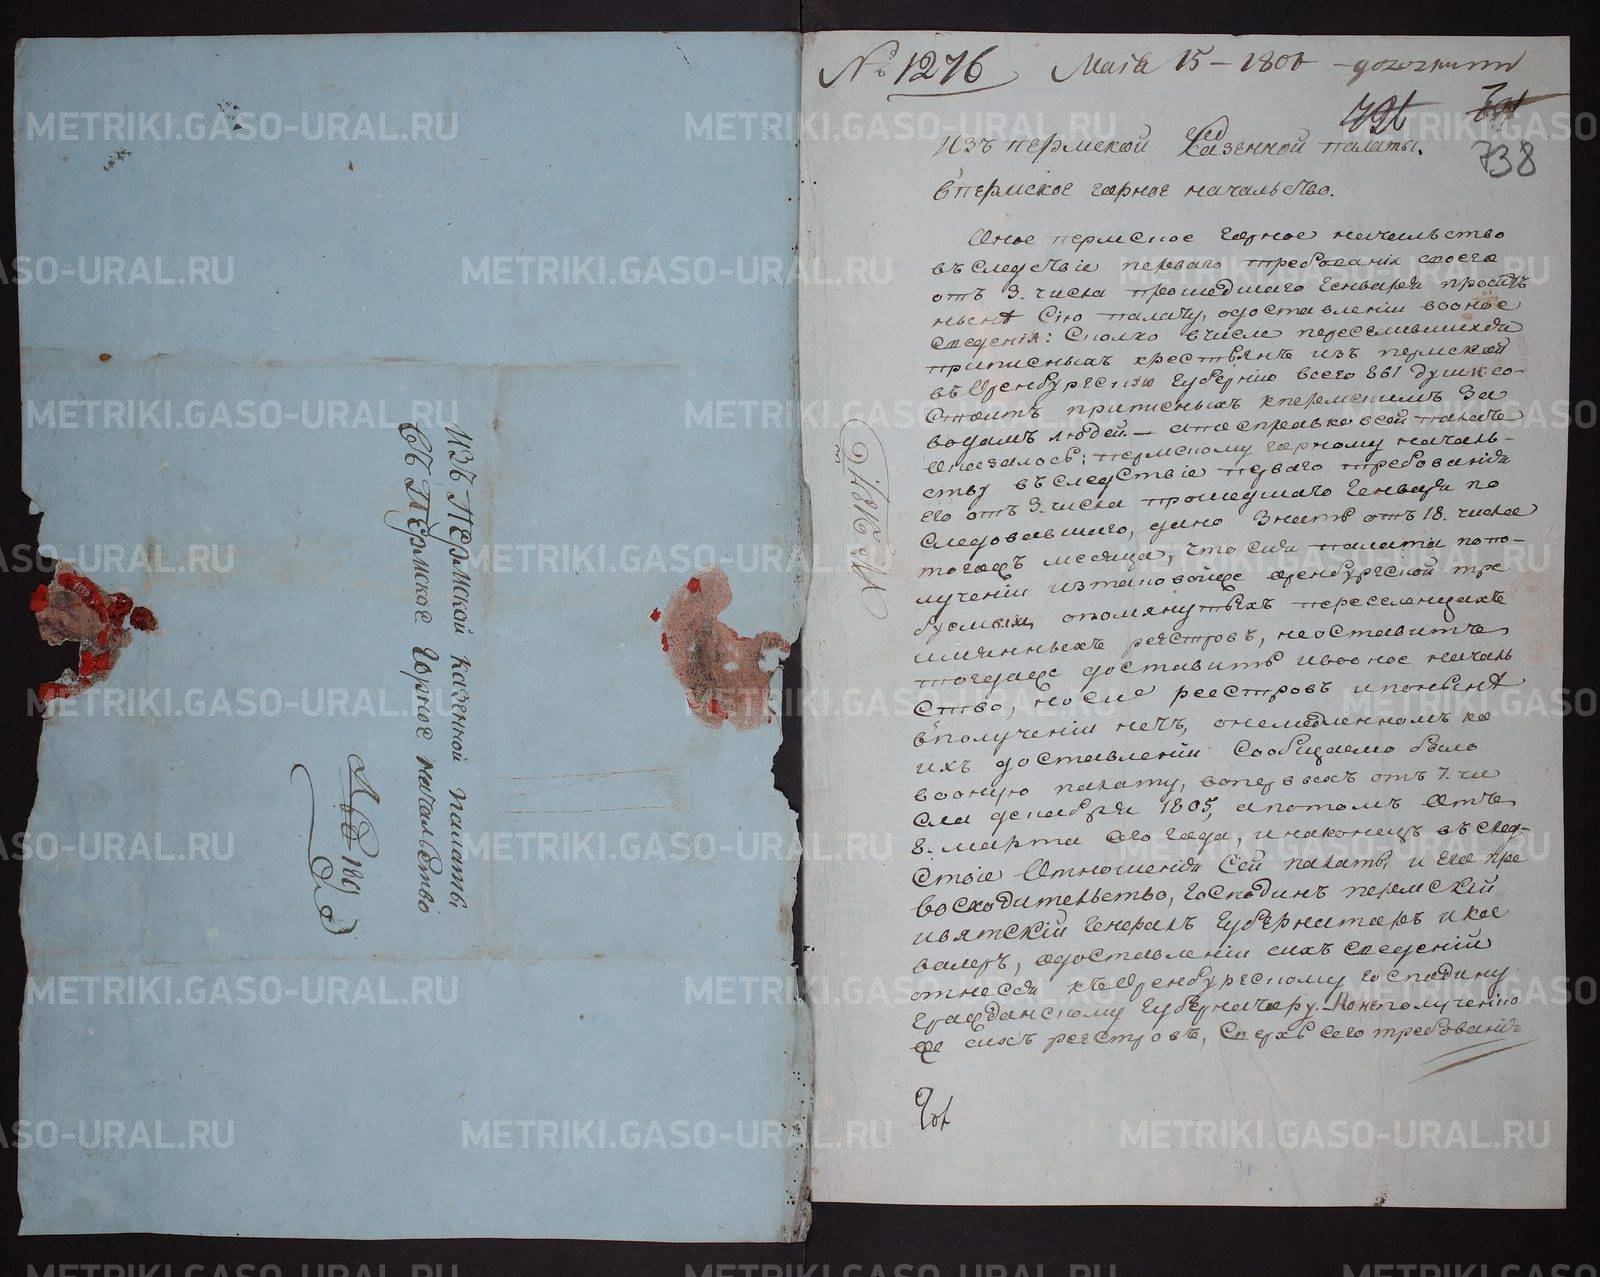 Изъ Пермской казенной палаты
Въ Пермское горное началство
№ 1276 Маія 15
738
Изъ пермской казенной палаты.
впермское горное началство.
Оное пермское горное начальство
въследствіе перваго требованія своего
отъ 3. числа прошедшаго Генваря
сію палату, одоставленіи вооное
сведенія: сколко вчисле переселившихся
приписныхъ крестьянъ изъ пермской
въ Оренбургскую губернію всего 861 души со-
стоитъ приписныхъ кпермскимъ за
водамъ людей. — апосправке всей палате
Оказалось: пермскому горному началь-
ству въследствіе перваго требованія
его отъ 3. числа прошедшаго Генваря по
следовавшаго, дано знать отъ 18. числа
тогожъ месяца, что сия палата попо-
лученіи изтаковойже оренбургской тре
буемыхъ опомянутыхъ переселенцахъ
имянныхъ реэстровъ, неоставитъ
тогдаже доставить ивооное началь
ство, носие реестровъ ипоныне
вполученіи нетъ, онемедленномъ же
ихъ доставленіи сообщаемо было
вооную палату, вопервыхъ отъ 7. чи
сла декабря 1805, апотомъ отъ
8. марта сего года, инаконецъ въслед-
ствіе отношенія сей палаты и его пре
восходительство, господинъ пермскій
ивятскій генералъ губернаторъ ика
валеръ, одоставленіи сихъ сведеній
отнесся къоренбургскому господину
гражданскому губернатору. — Понеполученію
же сихъ реестровъ, сверхъ сего требованія